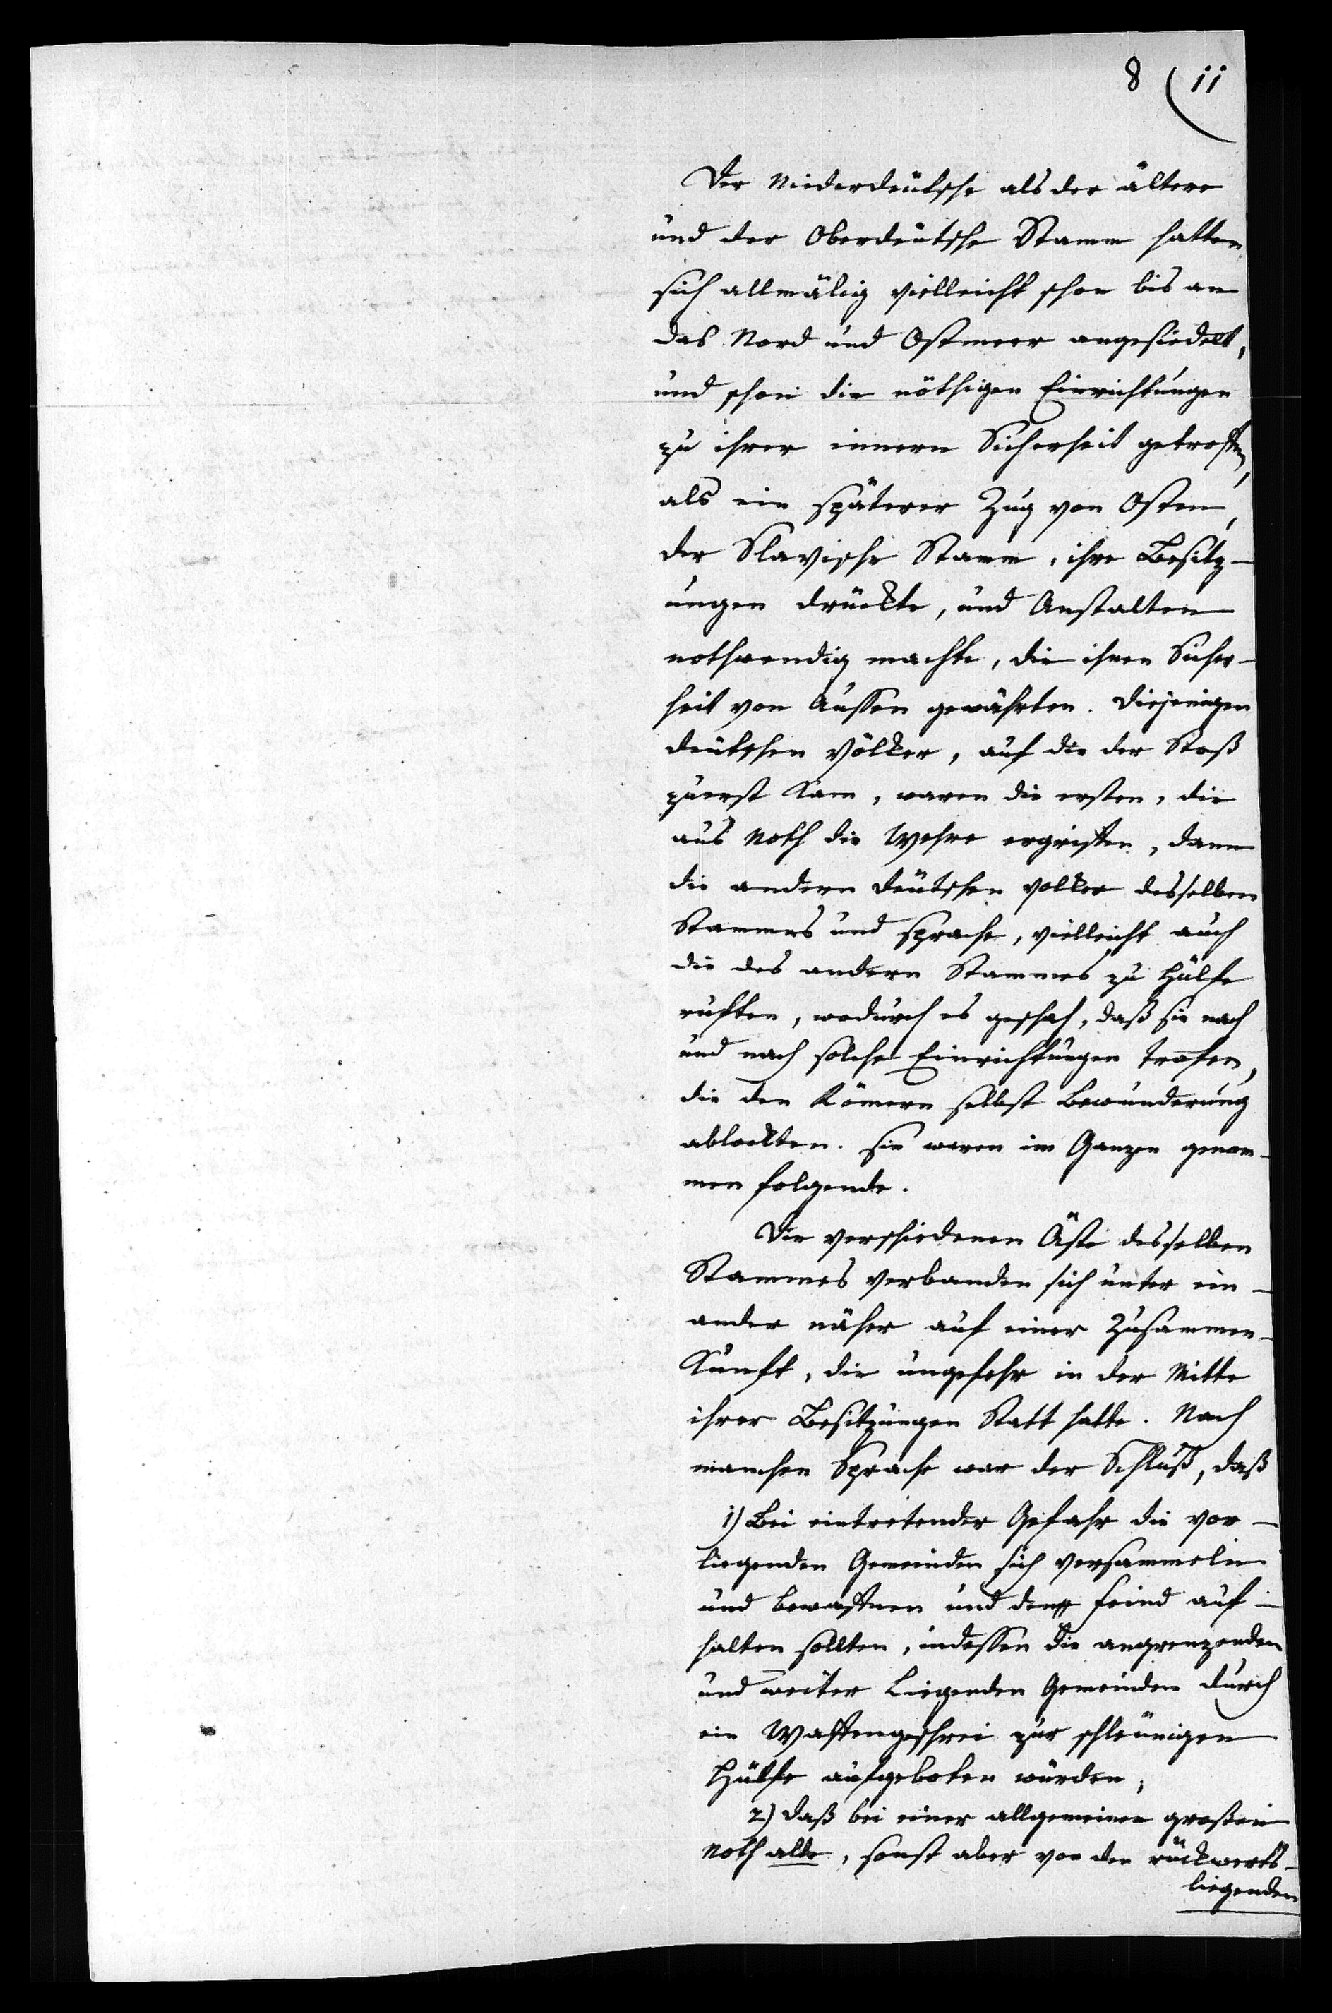 8 (11
Der Niederdeütsche als der ältere
und der Oberdeütsche Stamm hatten
sich allmälig vielleicht schon bis an
das Nord und Ostmeer angesiedelt,
und schon die nöthigen Einrichtungen
zu ihrer innern Sicherheit getroffen,
als ein späterer Zug von Osten,
der Slavische Stamm, ihre Besitz-
ungen drückte, und Anstalten
nothwendig machte, die ihnen Sicher-
heit von Aussen gewährten. Diejenigen
deütschen Völker, auf die der Stoß
zuerst kam, waren die ersten, die
aus Noth die Wehre ergriffen, dann
die andern deütschen Volker desselben
Stammes und Sprache, vielleicht auch
die des andern Stammes zu Hülfe
rufften, wodurch es geschah, daß sie nach
und nach solche Einrichtungen trafen,
die den Römern selbst Bewunderung
ablockten. Sie waren im Ganzen genom-
men folgende.
Die verschiedenen Äste desselben
Stammes verbanden sich unter ein-
ander näher auf einer Zusammen-
kunft, die ungefehr in der Mitte
ihrer Besitzungen Statt hatte. Nach
manchen Sprache war der Schluß, daß
1) Bei eintretender Gefahr die vor-
liegenden Gemeinden sich versammeln
und bewaffnen und den Feind auf-
halten sollten, indessen die angrenzenden
und weiter liegenden Gemeinden durch
ein Waffengeschrei zur schleünigen
Hülfe aufgeboten würden;
2) daß bei einer allgemeinen großen
Noth alle, sonst aber von den rückwerts-
liegenden